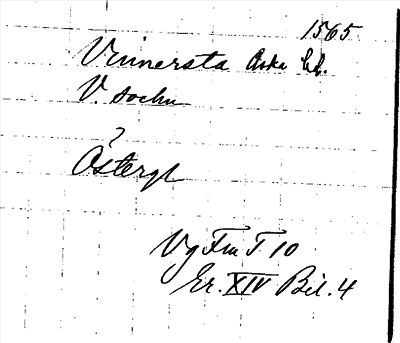 1565
Vinnersta Aska hd.
V. socken
?
Östergl
Vg Fru T 10
Er. XIV Bil. 4